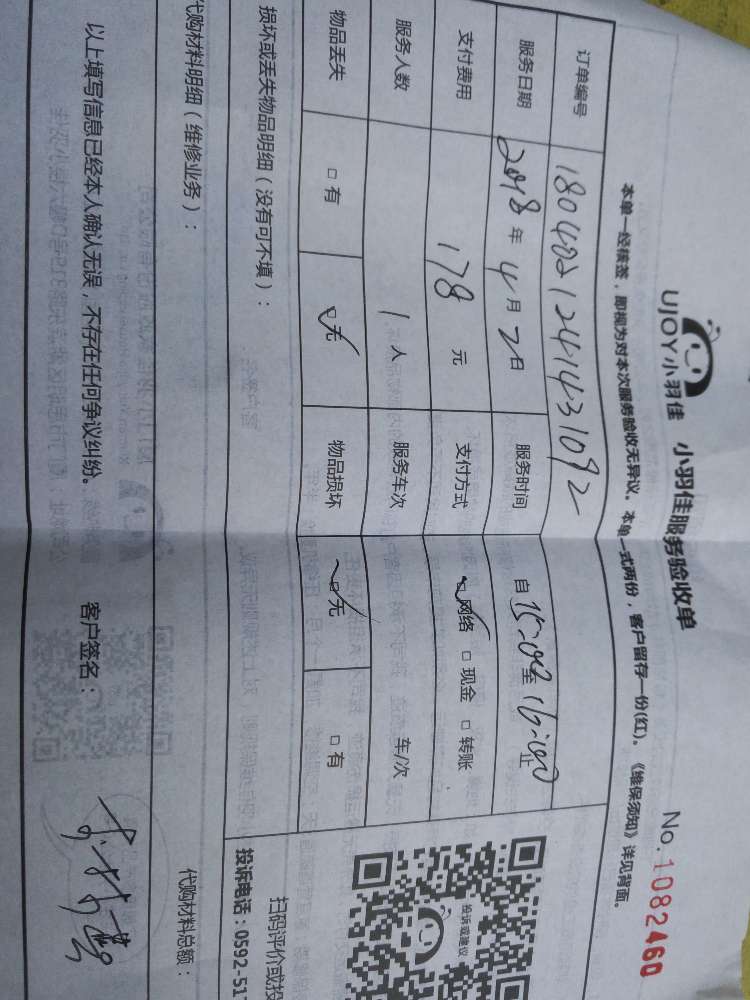 UJOY小羽佳 小羽佳服务验收单 No.1082460
本单一经核签，即视为对本次服务验收无异议。本单一式两份，客户留存一份(红)。《维保须知》详见背面。
订单编号 1804021241431092
服务日期 2018年4月2日 服务时间 自15:00至16:00止
支付费用 178元 支付方式 网络 现金 转账
服务人数 1人 服务车次 车/次
物品丢失 有 无 物品损坏 无 有
损坏或丢失物品明细（没有可不填）：
代购材料明细（维修业务）：
代购材料总额：
以上填写信息已经本人确认无误，不存在任何争议纠纷。 客户签名：
投诉或建议
扫码评价或投
投诉电话：0592-517